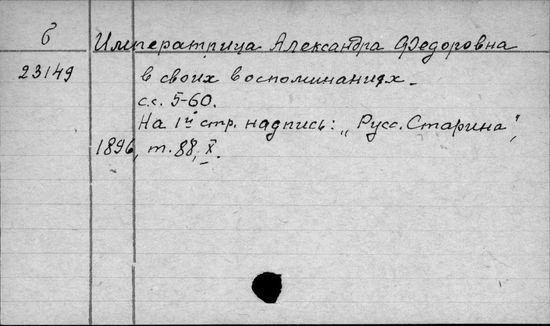 б
Императрица Александра Федоровна
23149
в своих воспоминаниях.
с.с. 5-60.
На 1й стр. надпись: „Русс. Старина",
1896, т. 88, X.